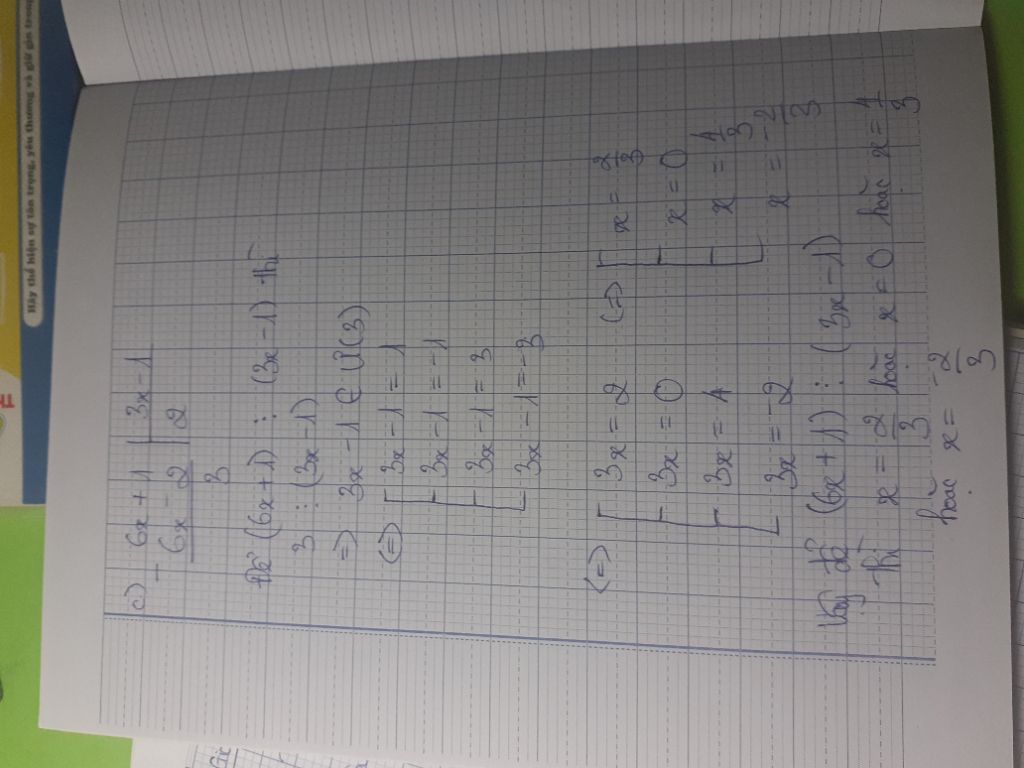 Hãy thể hiện sự tôn trọng, yêu thương và giữ gìn trong
c) 6x + 1 | 3x - 1
- 6x - 2 | 2
3
Để (6x + 1) ⋮ (3x - 1) thì
3 ⋮ (3x - 1)
=> 3x - 1 ∈ Ư(3)
(=) [ 3x - 1 = 1
3x - 1 = -1
3x - 1 = 3
3x - 1 = -3
(=) [ 3x = 2 (=) [ x = 2/3
3x = 0 x = 0
3x = 4 x = 4/3
3x = -2 x = -2/3
Vậy để (6x + 1) ⋮ (3x - 1)
thì x = 2/3 hoặc x = 0 hoặc x = 4/3
hoặc x = -2/3